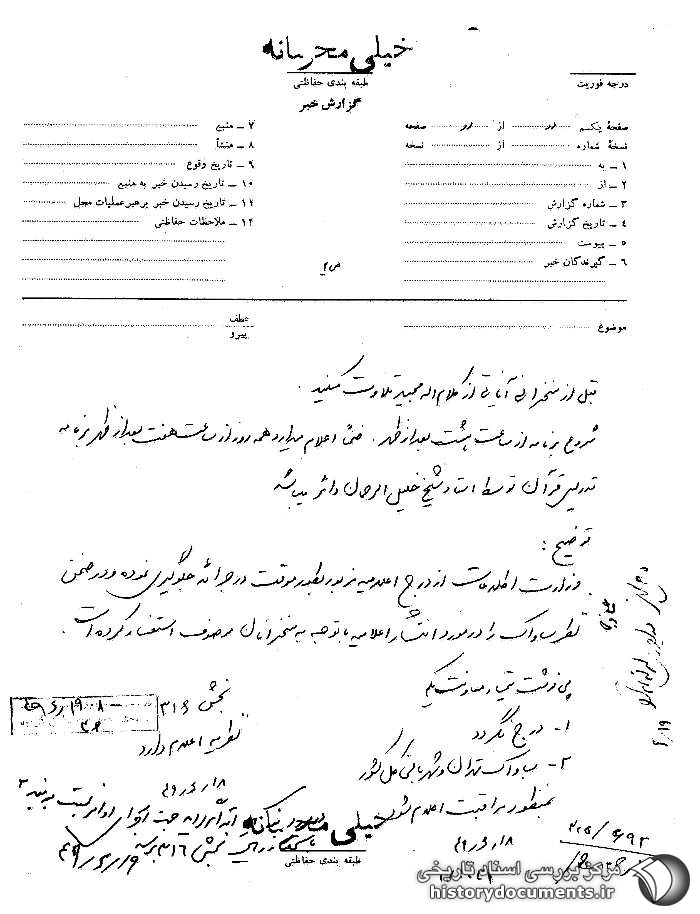 خیلی محرمانه
طبقه بندی حفاظتی
درجه فوریت
گزارش خبر
صفحهٔ یکم از صفحه
نسخهٔ شماره از نسخه
۱ - به
۲ - از
۳ - شماره گزارش
۴ - تاریخ گزارش
۵ - پیوست
۶ - گیرندگان خبر
۷ - منبع
۸ - منشأ
۹ - تاریخ وقوع
۱۰ - تاریخ رسیدن خبر به منبع
۱۱ - تاریخ رسیدن خبر برهبر عملیات محل
۱۲ - ملاحظات حفاظتی
موضوع
عطف
پیرو
قبل از سخنرانی آیاتی از کلام اله مجید تلاوت میکنید.
شروع برنامه از ساعت هشت بعدازظهر. ضمناً اعلام میدارد همه روز از ساعت هفت بعدازظهر برنامه
تدریس قرآن توسط استاد شیخ خلیل الرحمان دائر میباشد
توضیح:
وزارت اطلاعات از درج اعلامیه مزبور بطور موقت در جرائد جلوگیری نموده و در ضمن
نظر ساواک را در مورد انتشار اعلامیه با توجه به سخنرانان موصوف استفسار کرده است.
پی نوشت تیمسار معاونت یکم
۱- درج نگردد
۲- ساواک تهران و شهربانی کل کشور
بمنظور مراقبت اعلام شود
بخش ۳۱۶
نظریه اعلام دارد
خیلی محرمانه
طبقه بندی حفاظتی
مرکز بررسی اسناد تاریخی
historydocuments.ir